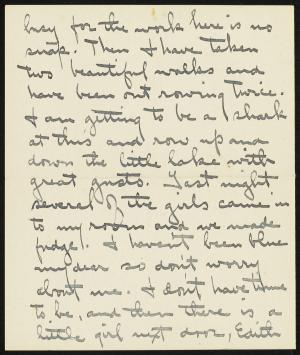 busy for the work here is no
snap. Then I have taken
two beautiful walks and
have been out rowing twice.
I am getting to be a shark
at this and row up and
down the little lake with
great gusto. Last night
several of the girls came in
to my room and we made
fudge!. I haven't been blue
my dear so don't worry
about me. I don't have time
to be, and then there is a
little girl next door, Edith